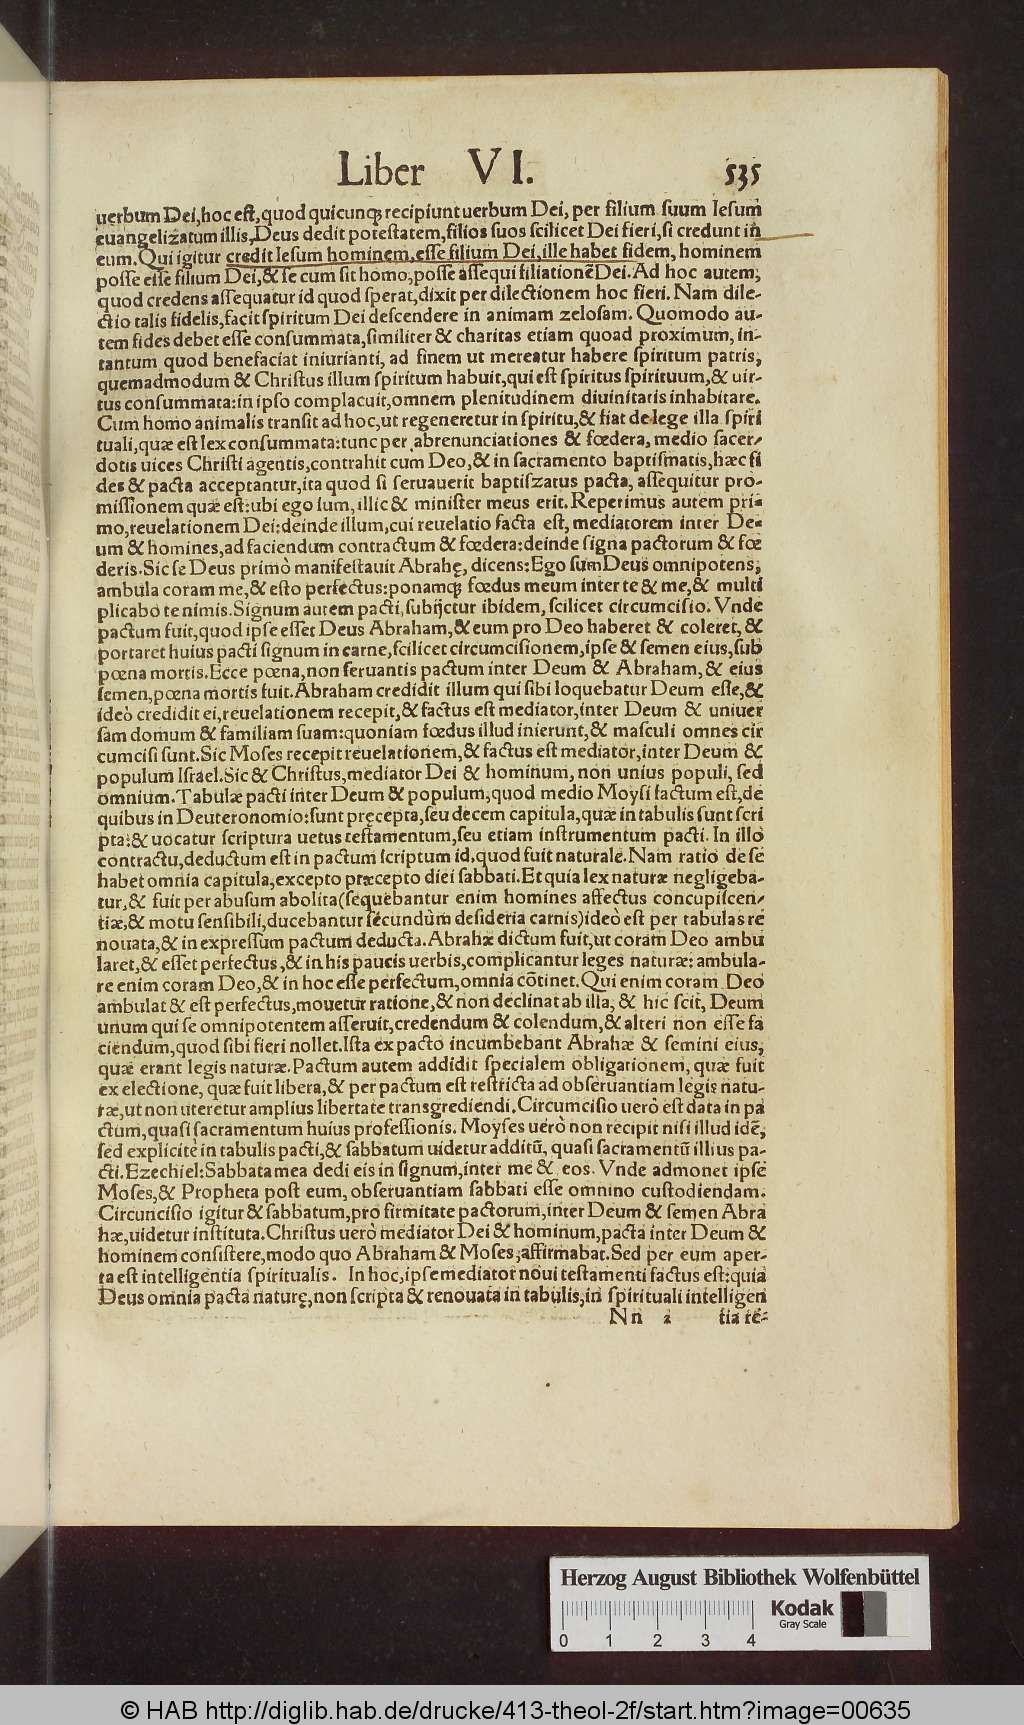 Liber VI. 535
uerbum Dei, hoc est, quod quicunq; recipiunt uerbum Dei, per filium suum Iesum
euangelizatum illis, Deus dedit potestatem, filios suos scilicet Dei fieri, si credunt in
eum. Qui igitur credit Iesum hominem, esse filium Dei, ille habet fidem, hominem
posse esse filium Dei, & se cum sit homo, posse assequi filiationē Dei. Ad hoc autem,
quod credens assequatur id quod sperat, dixit per dilectionem hoc fieri. Nam dile-
ctio talis fidelis, facit spiritum Dei descendere in animam zelosam. Quomodo au-
tem fides debet esse consummata, similiter & charitas etiam quoad proximum, in-
tantum quod benefaciat iniurianti, ad finem ut mereatur habere spiritum patris,
quemadmodum & Christus illum spiritum habuit, qui est spiritus spirituum, & uir-
tus consummata: in ipso complacuit, omnem plenitudinem diuinitatis inhabitare.
Cum homo animalis transit ad hoc, ut regeneretur in spiritu, & fiat de lege illa spiri
tuali, quæ est lex consummata: tunc per abrenunciationes & fœdera, medio sacer-
dotis uices Christi agentis, contrahit cum Deo, & in sacramento baptismatis, hæc fi
des & pacta acceptantur, ita quod si seruauerit baptiszatus pacta, assequitur pro-
missionem quæ est: ubi ego sum, illic & minister meus erit. Reperimus autem pri-
mo, reuelationem Dei: deinde illum, cui reuelatio facta est, mediatorem inter De-
um & homines, ad faciendum contractum & fœdera: deinde signa pactorum & fœ
deris. Sic se Deus primò manifestauit Abrahę, dicens: Ego sum Deus omnipotens,
ambula coram me, & esto perfectus: ponamq; fœdus meum inter te & me, & multi
plicabo te nimis. Signum autem pacti, subijctur ibidem, scilicet circumcisio. Vnde
pactum fuit, quod ipse esset Deus Abraham, & eum pro Deo haberet & coleret, &
portaret huius pacti signum in carne, scilicet circumcisionem, ipse & semen eius, sub
pœna mortis. Ecce pœna, non seruantis pactum inter Deum & Abraham, & eius
semen, pœna mortis fuit. Abraham credidit illum qui sibi loquebatur Deum esse, &
ideò credidit ei, reuelationem recepit, & factus est mediator, inter Deum & uniuer
sam domum & familiam suam: quoniam fœdus illud inierunt, & masculi omnes cir
cumcisi sunt. Sic Moses recepit reuelationem, & factus est mediator, inter Deum &
populum Israel. Sic & Christus, mediator Dei & hominum, non unius populi, sed
omnium. Tabulæ pacti inter Deum & populum, quod medio Moysi factum est, de
quibus in Deuteronomio: sunt pręcepta, seu decem capitula, quæ in tabulis sunt scri
pta: & uocatur scriptura uetus testamentum, seu etiam instrumentum pacti. In illo
contractu, deductum est in pactum scriptum id, quod fuit naturale. Nam ratio de se
habet omnia capitula, excepto præcepto diei sabbati. Et quia lex naturæ negligeba-
tur, & fuit per abusum abolita (sequebantur enim homines affectus concupiscen-
tiæ, & motu sensibili, ducebantur secundùm desideria carnis) ideò est per tabulas re
nouata, & in expressum pactum deducta. Abrahæ dictum fuit, ut coram Deo ambu
laret, & esset perfectus, & in his paucis uerbis, complicantur leges naturæ: ambula-
re enim coram Deo, & in hoc esse perfectum, omnia cōtinet. Qui enim coram Deo
ambulat & est perfectus, mouetur ratione, & non declinat ab illa, & hic scit, Deum
unum qui se omnipotentem asseruit, credendum & colendum, & alteri non esse fa
ciendum, quod sibi fieri nollet. Ista ex pacto incumbebant Abrahæ & semini eius,
quæ erant legis naturæ. Pactum autem addidit specialem obligationem, quæ fuit
ex electione, quæ fuit libera, & per pactum est restricta ad obseruantiam legis natu-
ræ, ut non uteretur amplius libertate transgrediendi. Circumcisio uerò est data in pa
ctum, quasi sacramentum huius professionis. Moyses uerò non recipit nisi illud idē,
sed explicitè in tabulis pacti, & sabbatum uidetur additū, quasi sacramentū illius pa-
cti. Ezechiel: Sabbata mea dedi eis in signum, inter me & eos. Vnde admonet ipse
Moses, & Propheta post eum, obseruantiam sabbati esse omnino custodiendam.
Circuncisio igitur & sabbatum, pro firmitate pactorum, inter Deum & semen Abra
hæ, uidetur instituta. Christus uerò mediator Dei & hominum, pacta inter Deum &
hominem consistere, modo quo Abraham & Moses, affirmabat. Sed per eum aper-
ta est intelligentia spiritualis. In hoc, ipse mediator noui testamenti factus est: quia
Deus omnia pacta naturę, non scripta & renouata in tabulis, in spirituali intelligen
Nn 2 tia re-
Herzog August Bibliothek Wolfenbüttel
0 1 2 3 4
Kodak
Gray Scale
© HAB http://diglib.hab.de/drucke/413-theol-2f/start.htm?image=00635